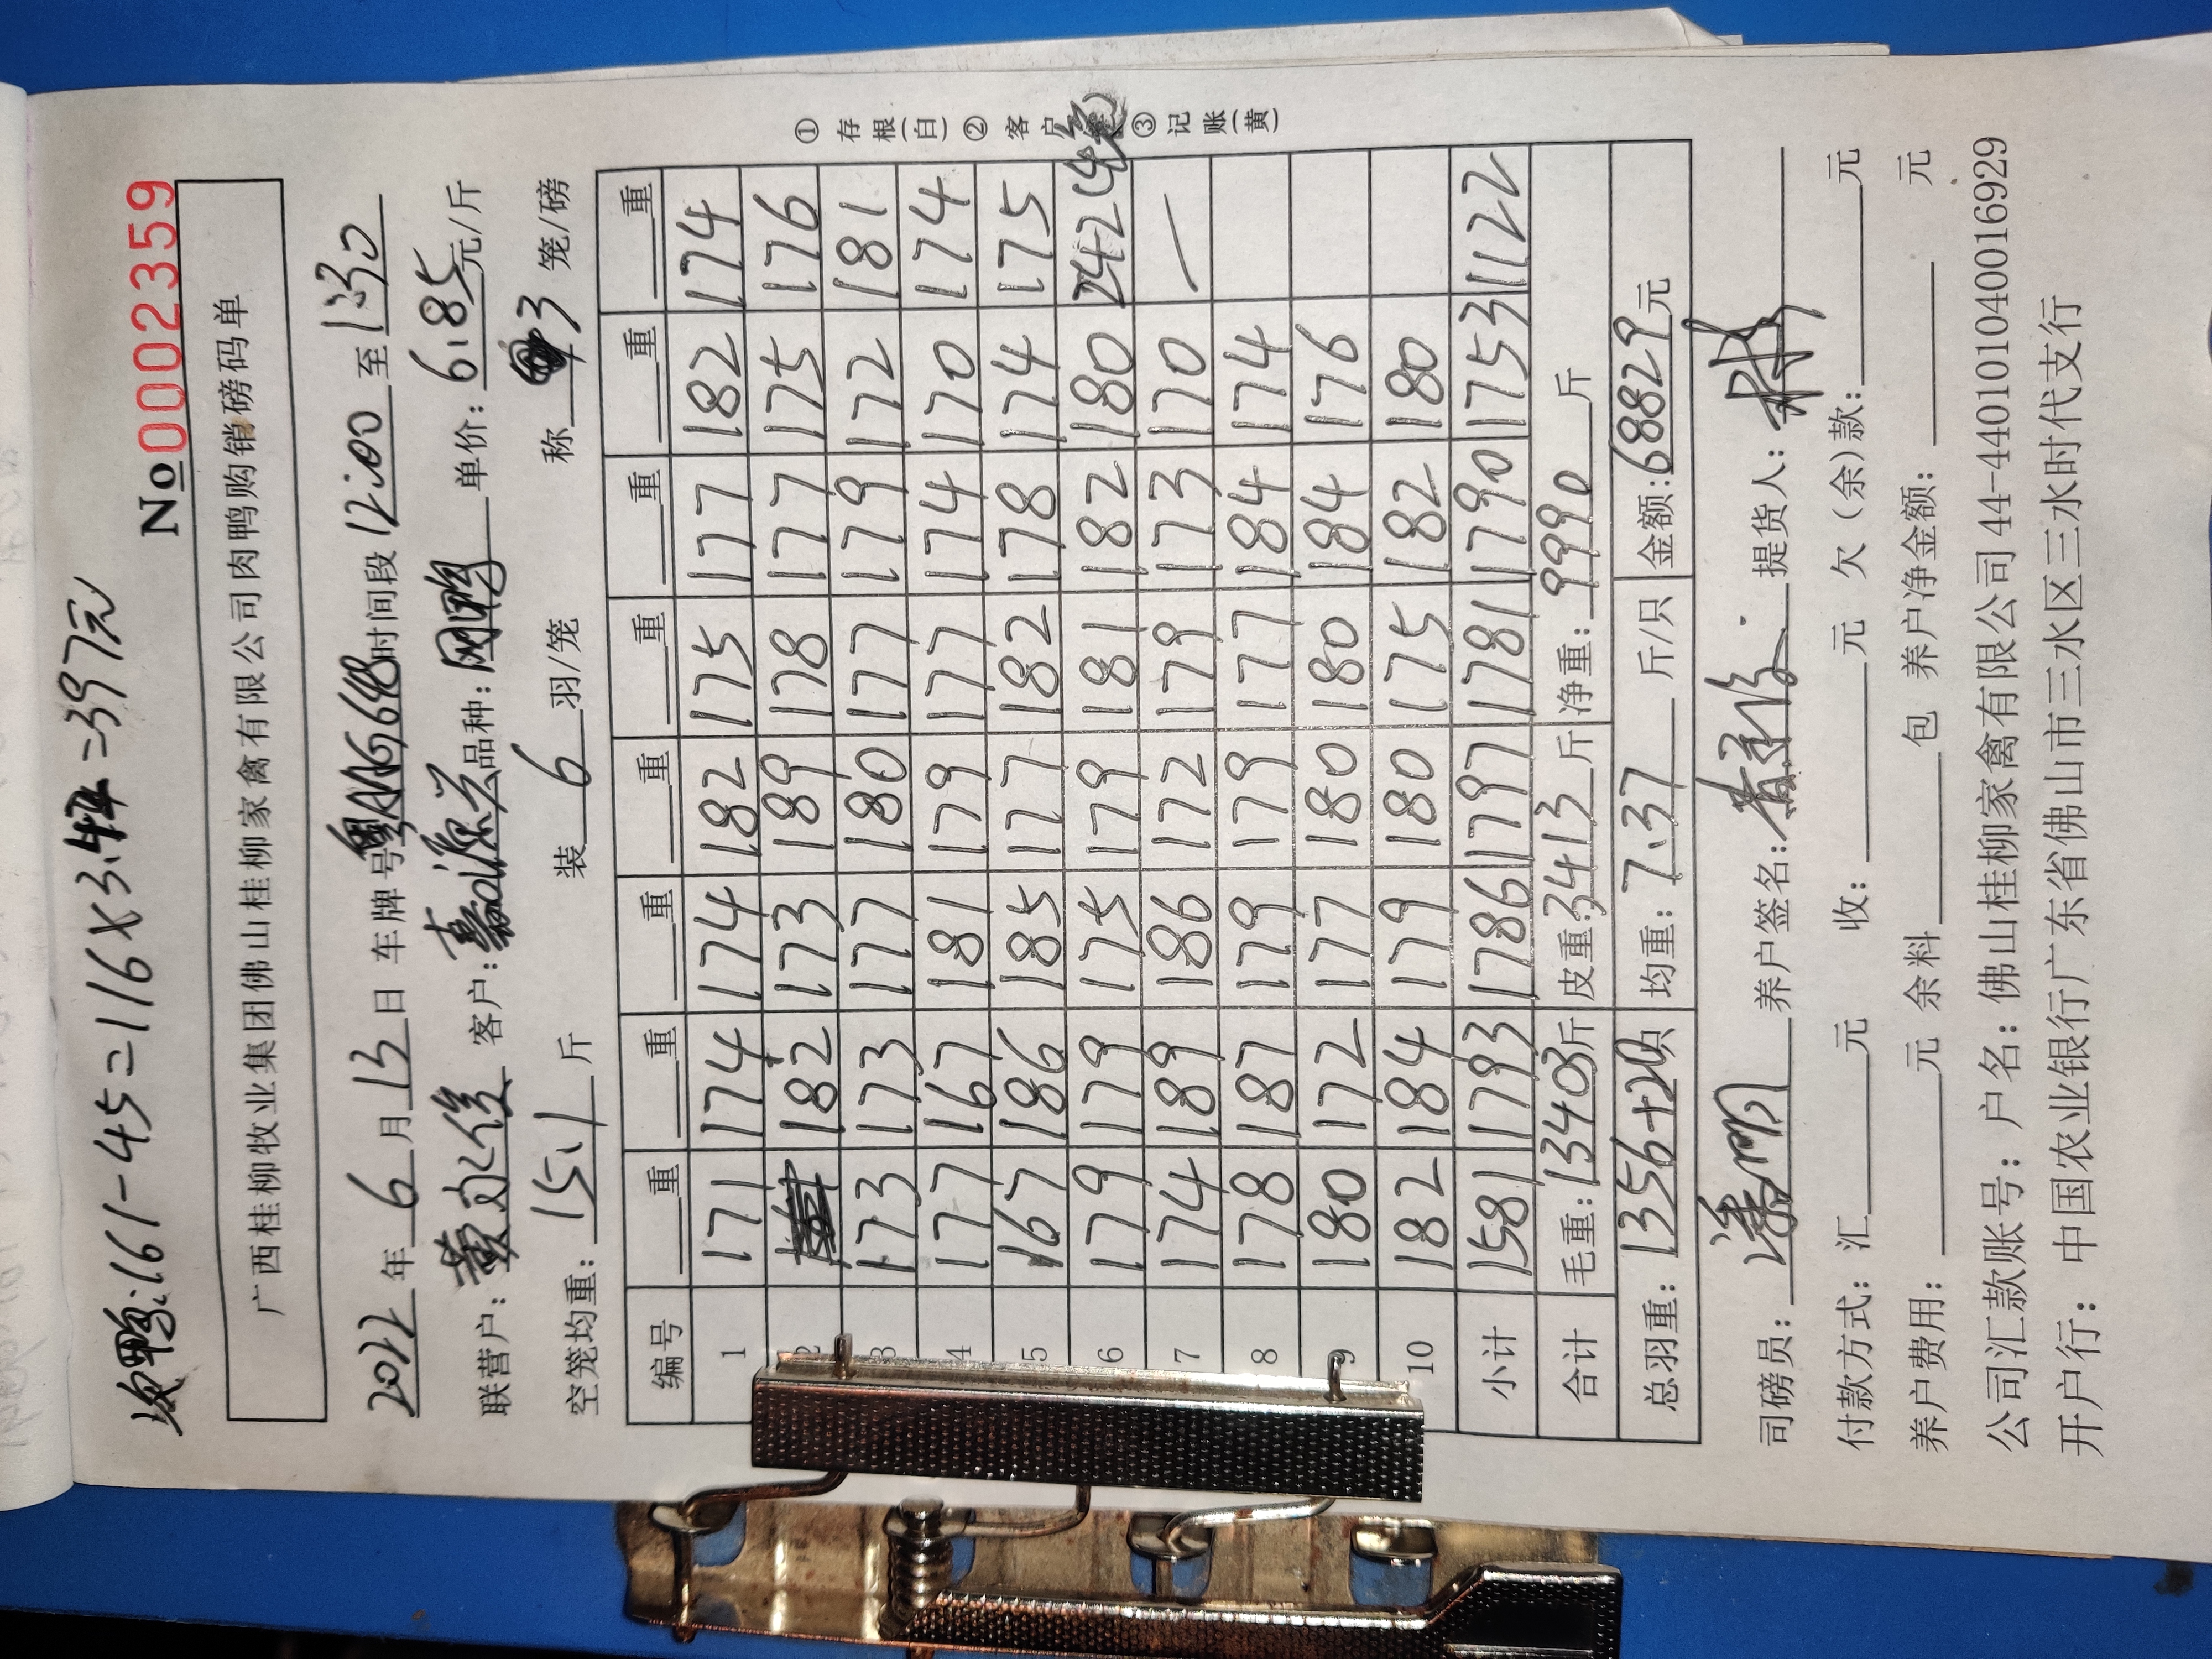 鸭:161-45=116×3.42=397元
No 0002359
广西桂柳牧业集团佛山桂柳家禽有限公司肉鸭购销磅码单
2022年6月13日 车牌号粤A16648时间段12:00至1:30
联营户:黄 俊 客户:嘉源兴 品种:网鸭 单价:6.85元/斤
空笼均重:15.1斤 装6羽/笼 称3笼/磅
编号 重 重 重 重 重 重 重 重
1 171 174 174 182 175 177 182 174
2 182 173 189 178 177 175 176
3 173 173 177 180 177 179 172 181
4 177 167 181 179 177 174 170 174
5 167 186 185 177 182 178 174 175
6 179 179 175 179 181 182 180 242(4笼)
7 174 189 186 172 179 173 170 —
8 178 187 179 179 177 184 174
9 180 172 177 180 180 184 176
10 182 184 179 180 175 182 180
小计 1581 1793 1786 1797 1781 1790 1753 1122
合计 毛重:13403斤 皮重:3413斤 净重:9990斤
总羽重:1356+2只 均重:7.37斤/只 金额:68829元
司磅员:潘明 养户签名: 提货人:林
付款方式:汇 元 收: 元 欠(余)款: 元
养户费用: 元 余料 包 养户净金额: 元
公司汇款账号:户名:佛山桂柳家禽有限公司 44-440101040016929
开户行:中国农业银行广东省佛山市三水区三水时代支行
①存根(白)②客户 ③记账(黄)